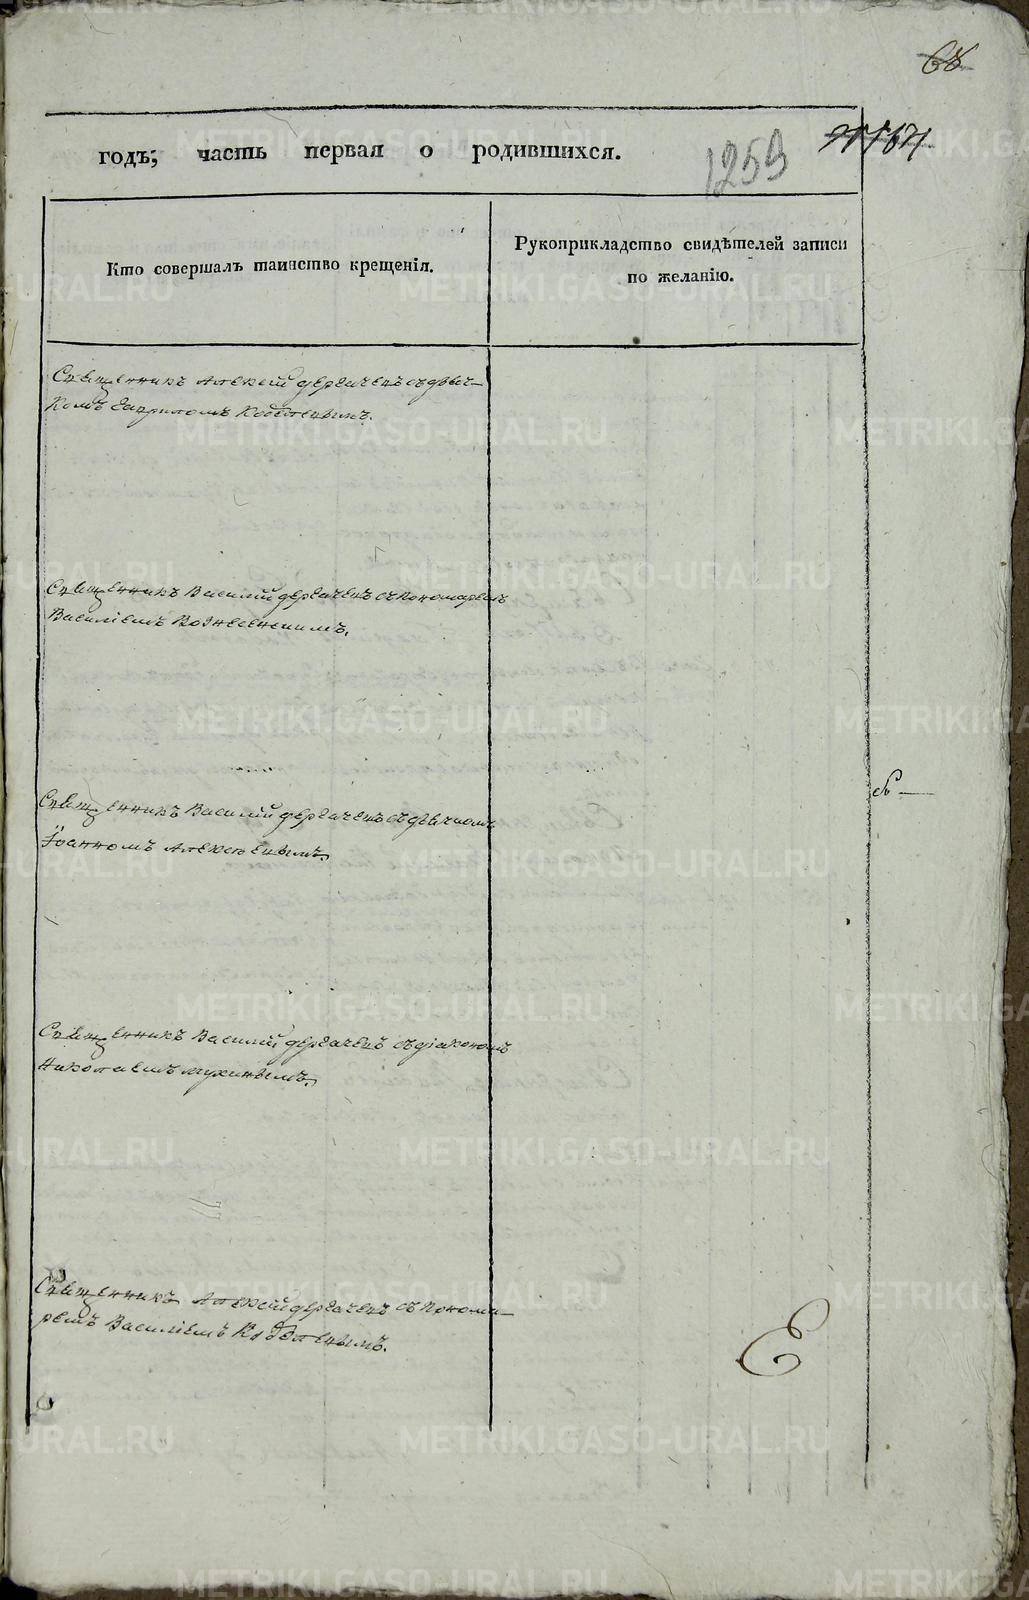 68
годъ; часть первая о родившихся.
1259
Кто совершалъ таинство крещенія.
Рукоприкладство свидѣтелей записи
по желанію.
Священникъ Алексій Дергачевъ съ дьяч-
комъ Гавриломъ Кобелевымъ.
Священникъ Василій Дергачевъ съ пономаремъ
Василіемъ Вознесенскимъ.
Священникъ Василій Дергачевъ съ дьячкомъ
Іоанномъ Алексѣевымъ.
Священникъ Василій Дергачевъ съ діакономъ
Николаемъ Мухинымъ.
Священникъ Алексій Дергачевъ съ понома-
ремъ Василіемъ Кобелевымъ.
METRIKI.GASO-URAL.RU